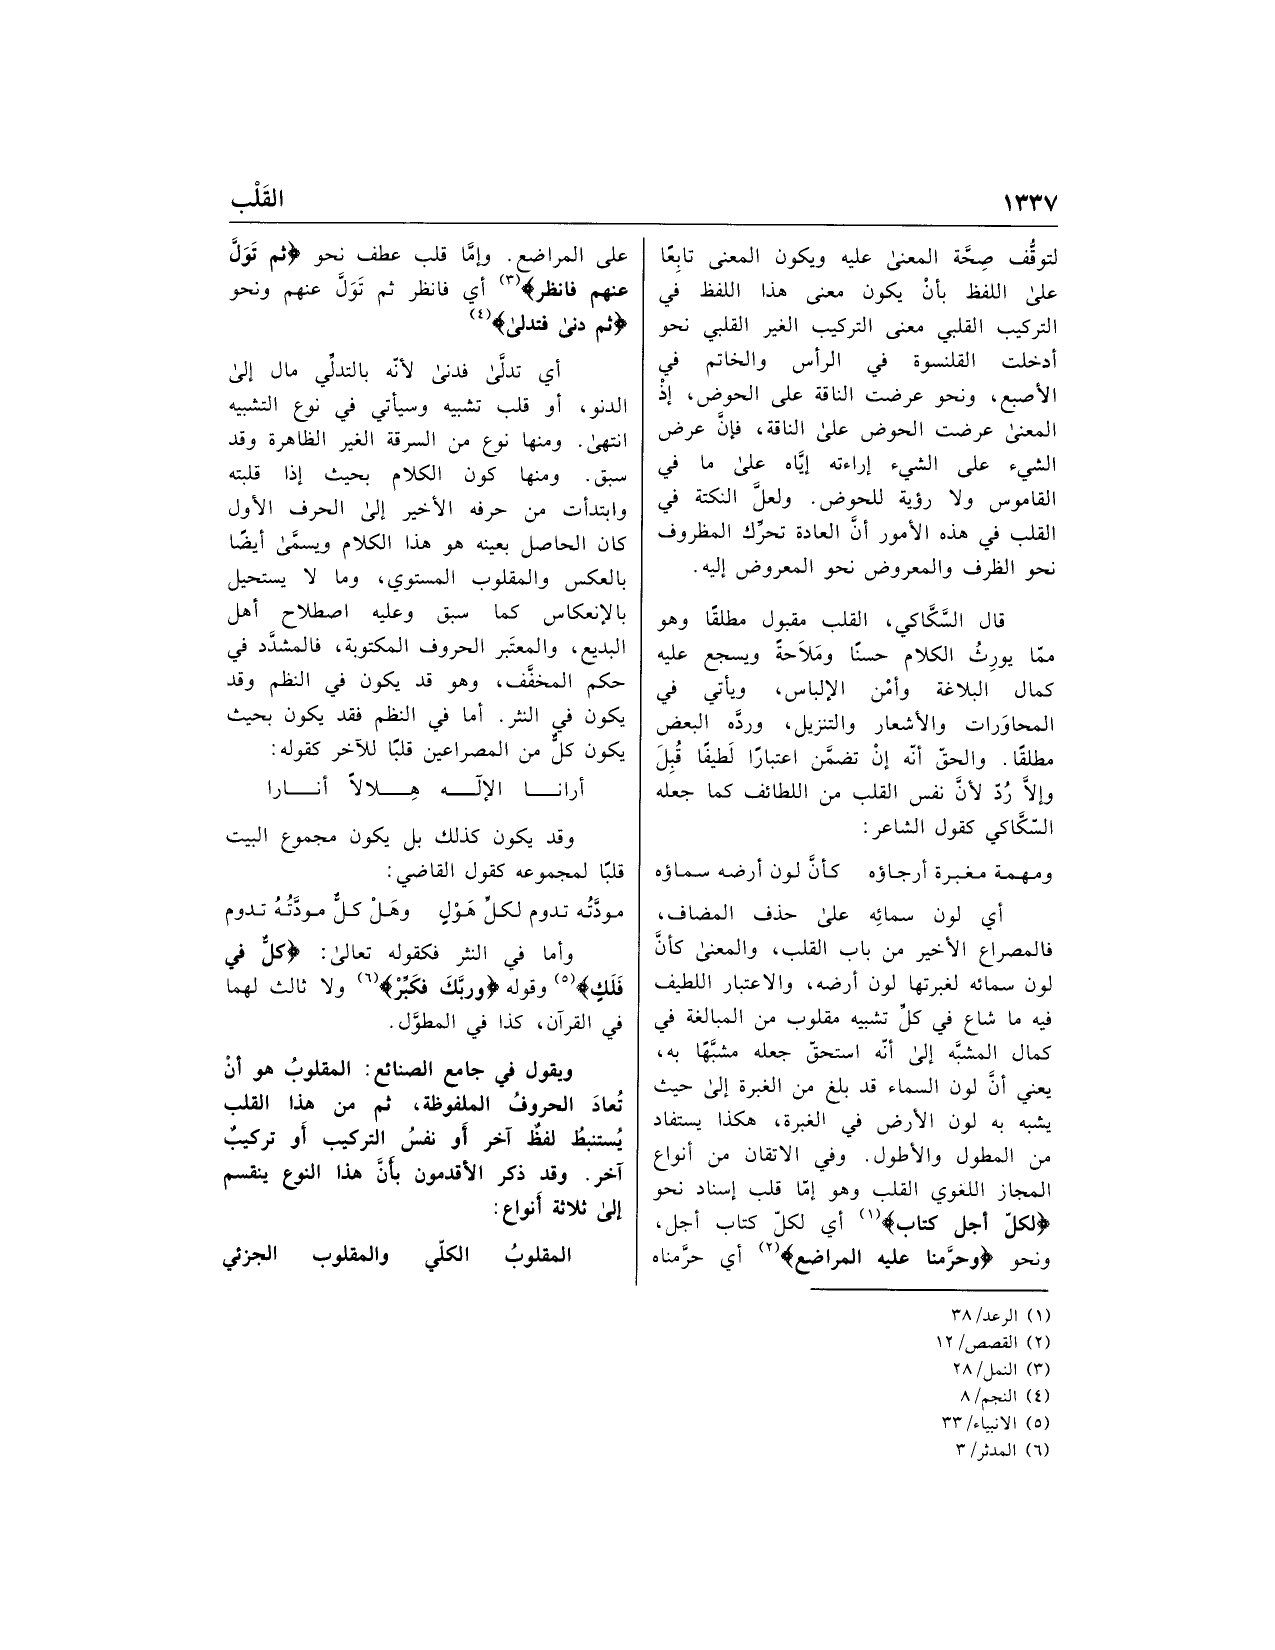 ١٣٣٧
القَلْب
لتوقُّف صِحَّة المعنىٰ عليه ويكون المعنى تابِعًا
علىٰ اللفظ بأنْ يكون معنى هذا اللفظ في
التركيب القلبي معنى التركيب الغير القلبي نحو
أدخلت القلنسوة في الرأس والخاتم في
الأصبع، ونحو عرضت الناقة على الحوض، إذْ
المعنىٰ عرضت الحوض علىٰ الناقة، فإنَّ عرض
الشيء على الشيء إراءته إيَّاه علىٰ ما في
القاموس ولا رؤية للحوض. ولعلَّ النكتة في
القلب في هذه الأمور أنَّ العادة تحرِّك المظروف
نحو الظرف والمعروض نحو المعروض إليه.
قال السَّكَّاكي، القلب مقبول مطلقًا وهو
ممّا يورِثُ الكلام حسنًا ومَلاَحةً ويسجع عليه
كمال البلاغة وأمْن الإلباس، ويأتي في
المحاوَرات والأشعار والتنزيل، وردَّه البعض
مطلقًا. والحقّ أنّه إنْ تضمَّن اعتبارًا لَطيفًا قُبِلَ
وإلاَّ رُدّ لأنَّ نفس القلب من اللطائف كما جعله
السّكَّاكي كقول الشاعر:
ومهمة مغبرة أرجاؤه كأنَّ لون أرضه سماؤه
أي لون سمائِه علىٰ حذف المضاف،
فالمصراع الأخير من باب القلب، والمعنىٰ كأنَّ
لون سمائه لغبرتها لون أرضه، والاعتبار اللطيف
فيه ما شاع في كلِّ تشبيه مقلوب من المبالغة في
كمال المشبَّه إلىٰ أنّه استحقّ جعله مشبَّهًا به،
يعني أنَّ لون السماء قد بلغ من الغبرة إلىٰ حيث
يشبه به لون الأرض في الغبرة، هكذا يستفاد
من المطول والأطول. وفي الاتقان من أنواع
المجاز اللغوي القلب وهو إمّا قلب إسناد نحو
﴿لكلّ أجل كتاب﴾(١) أي لكلّ كتاب أجل،
ونحو ﴿وحرَّمنا عليه المراضع﴾(٢) أي حرَّمناه
على المراضع. وإمَّا قلب عطف نحو ﴿ثم تَوَلَّ
عنهم فانظر﴾(٣) أي فانظر ثم تَوَلَّ عنهم ونحو
﴿ثم دنىٰ فتدلىٰ﴾(٤)
أي تدلَّىٰ فدنىٰ لأنّه بالتدلِّي مال إلىٰ
الدنو، أو قلب تشبيه وسيأتي في نوع التشبيه
انتهىٰ. ومنها نوع من السرقة الغير الظاهرة وقد
سبق. ومنها كون الكلام بحيث إذا قلبته
وابتدأت من حرفه الأخير إلىٰ الحرف الأول
كان الحاصل بعينه هو هذا الكلام ويسمَّىٰ أيضًا
بالعكس والمقلوب المستوي، وما لا يستحيل
بالإنعكاس كما سبق وعليه اصطلاح أهل
البديع، والمعتَبر الحروف المكتوبة، فالمشدَّد في
حكم المخفَّف، وهو قد يكون في النظم وقد
يكون في النثر. أما في النظم فقد يكون بحيث
يكون كلٌّ من المصراعين قلبًا للآخر كقوله:
أرانـــا الإلٓـــه هـــلالاً أنـــارا
وقد يكون كذلك بل يكون مجموع البيت
قلبًا لمجموعه كقول القاضي:
مودَّتُه تدوم لكلِّ هَوْلٍ وهَلْ كلٌّ مودَّتُهُ تدوم
وأما في النثر فكقوله تعالىٰ: ﴿كلٌّ في
فَلَكٍ﴾(٥) وقوله ﴿وربَّكَ فكَبِّرْ﴾(٦) ولا ثالث لهما
في القرآن، كذا في المطوَّل.
ويقول في جامع الصنائع: المقلوبُ هو أنْ
تُعادَ الحروفُ الملفوظة، ثم من هذا القلب
يُستنبطُ لفظٌ آخر أَو نفسُ التركيب أَو تركيبٌ
آخر. وقد ذكر الأقدمون بأنَّ هذا النوع ينقسم
إلىٰ ثلاثة أَنواع:
المقلوبُ الكلّي والمقلوب الجزئي
(١) الرعد/ ٣٨
(٢) القصص/ ١٢
(٣) النمل/ ٢٨
(٤) النجم/ ٨
(٥) الانبياء/ ٣٣
(٦) المدثر/ ٣